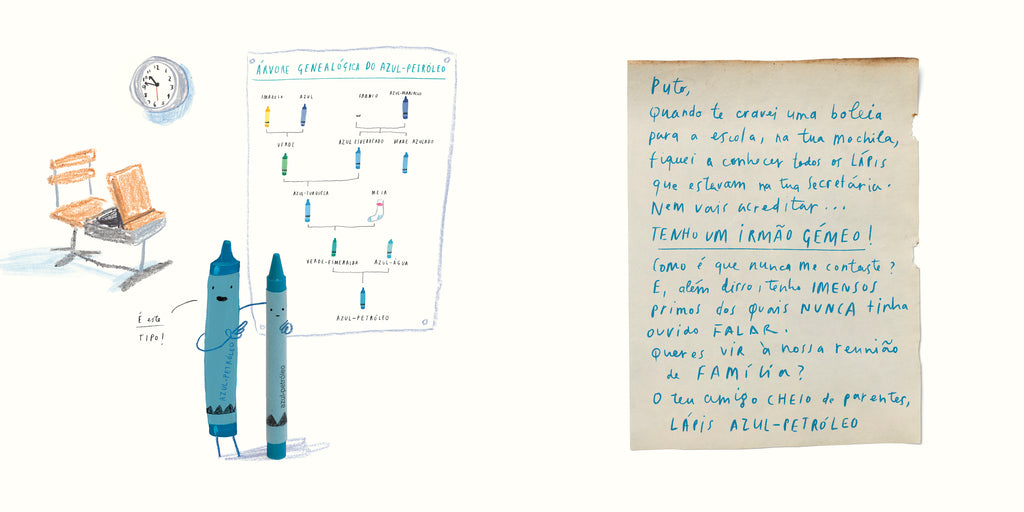 ÁRVORE GENEALÓGICA DO AZUL-PETRÓLEO
AMARELO AZUL BRANCO AZUL-MARINHO
VERDE AZUL ESVERDEADO VERDE AZULADO
AZUL-TURQUESA MEIA
VERDE-ESMERALDA AZUL-ÁGUA
AZUL-PETRÓLEO
É este
TIPO!
AZUL-PETRÓLEO
azul-petróleo
Puto,
Quando te cravei uma boleia
para a escola, na tua mochila,
fiquei a conhecer todos os LÁPIS
que estavam na tua secretária.
Nem vais acreditar...
TENHO UM IRMÃO GÉMEO!
Como é que nunca me contaste?
E, além disso, tenho IMENSOS
primos dos quais NUNCA tinha
ouvido FALAR.
Queres VIR à nossa reunião
de FAMÍLIA?
O teu amigo CHEIO de parentes,
LÁPIS AZUL-PETRÓLEO